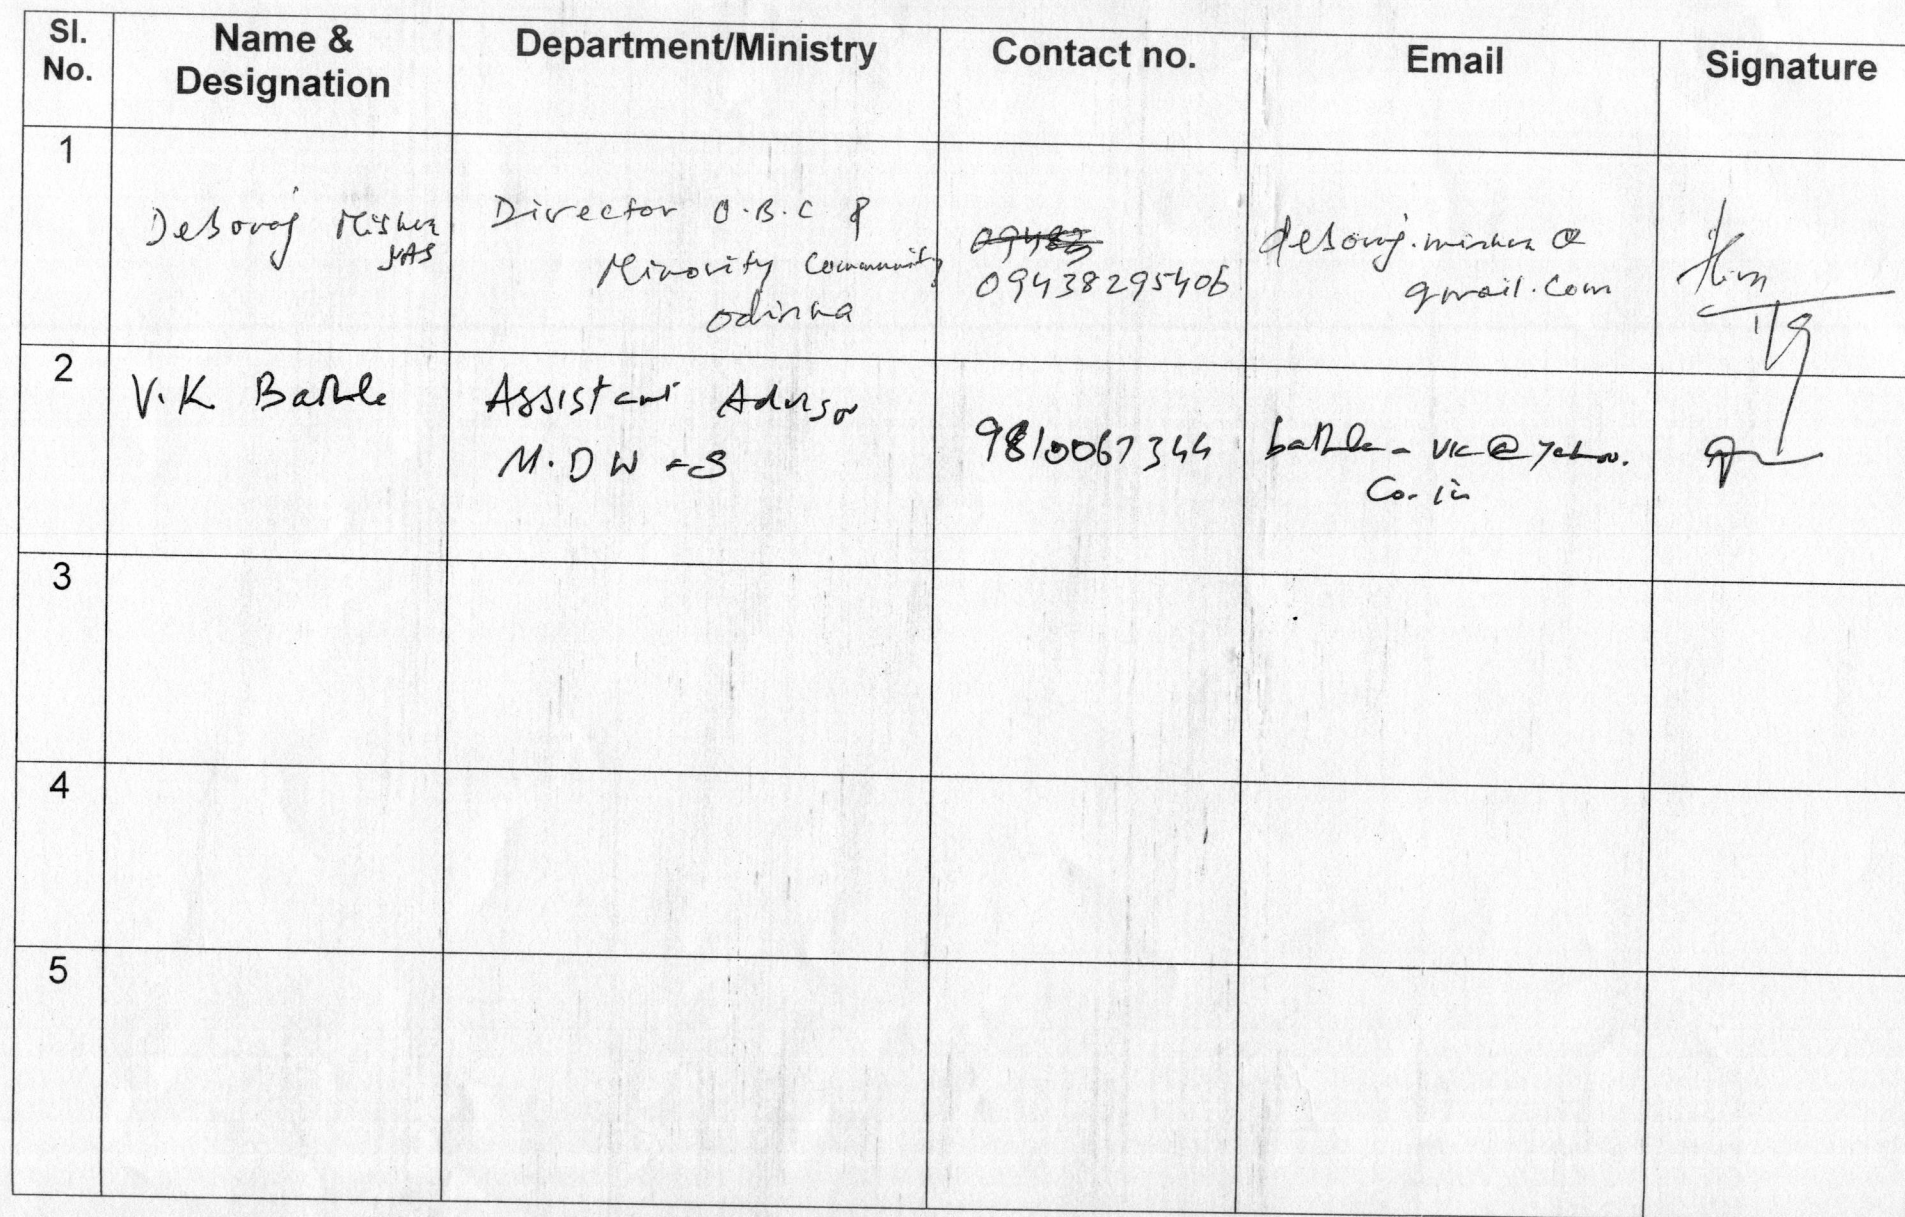 Sl. No.
Name & Designation
Department/Ministry
Contact no.
Email
Signature
1
Debaraj Mishra
Director O.B.C &
Minority Community
odisha
09438295406
debaraj.mishra@
gmail.com
2
V.K
Assistant Advisor
M.D W & S
9810067344
Co. in
3
4
5